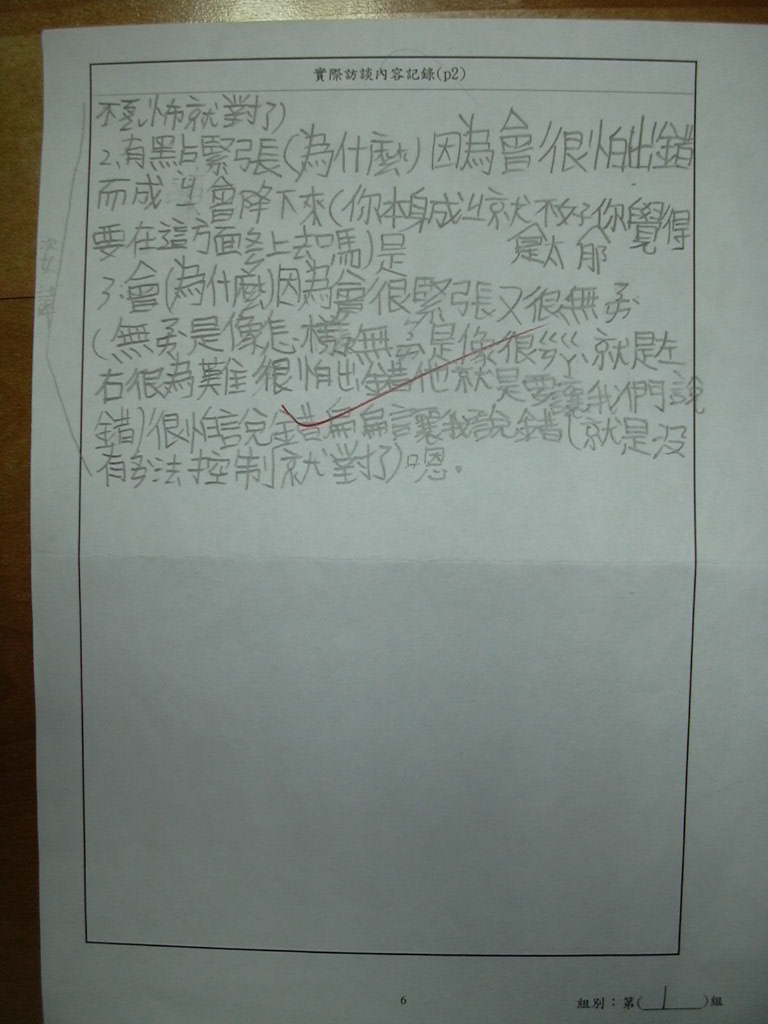 實際訪談內容記錄(p2)
不恐怖就對了)
2、有點緊張(為什麼)因為會很怕出錯
而成ㄐ會降下來(你本身成ㄐ就不好你覺得
要在這方面爸上去嗎)是
3、會(為什麼)因為會很緊張又很無ㄋ
(無ㄋ是像怎樣無ㄋ是像很ㄍㄍㄚ、就是左
右很為難很怕出錯他就是要讓我們說
錯)很怕說錯偏偏讓我說錯(就是沒
有方法控制就對了)嗯。
6
組別：第(1)組